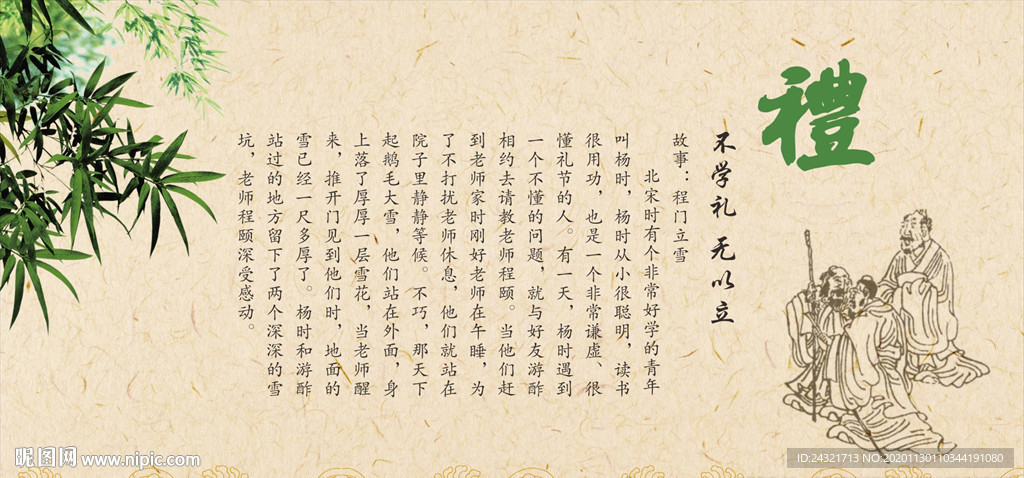 禮
不学礼 无以立
故事：程门立雪
北宋时有个非常好学的青年
叫杨时，杨时从小很聪明，读书
很用功，也是一个非常谦虚、很
懂礼节的人。有一天，杨时遇到
一个不懂的问题，就与好友游酢
相约去请教老师程颐。当他们赶
到老师家时刚好老师在午睡，为
了不打扰老师休息，他们就站在
院子里静静等候。不巧，那天下
起鹅毛大雪，他们站在外面，身
上落了厚厚一层雪花，当老师醒
来，推开门见到他们时，地面的
雪已经一尺多厚了。杨时和游酢
站过的地方留下了两个深深的雪
坑，老师程颐深受感动。
昵图网 www.nipic.com
ID:24321713 NO:20201130110344191080